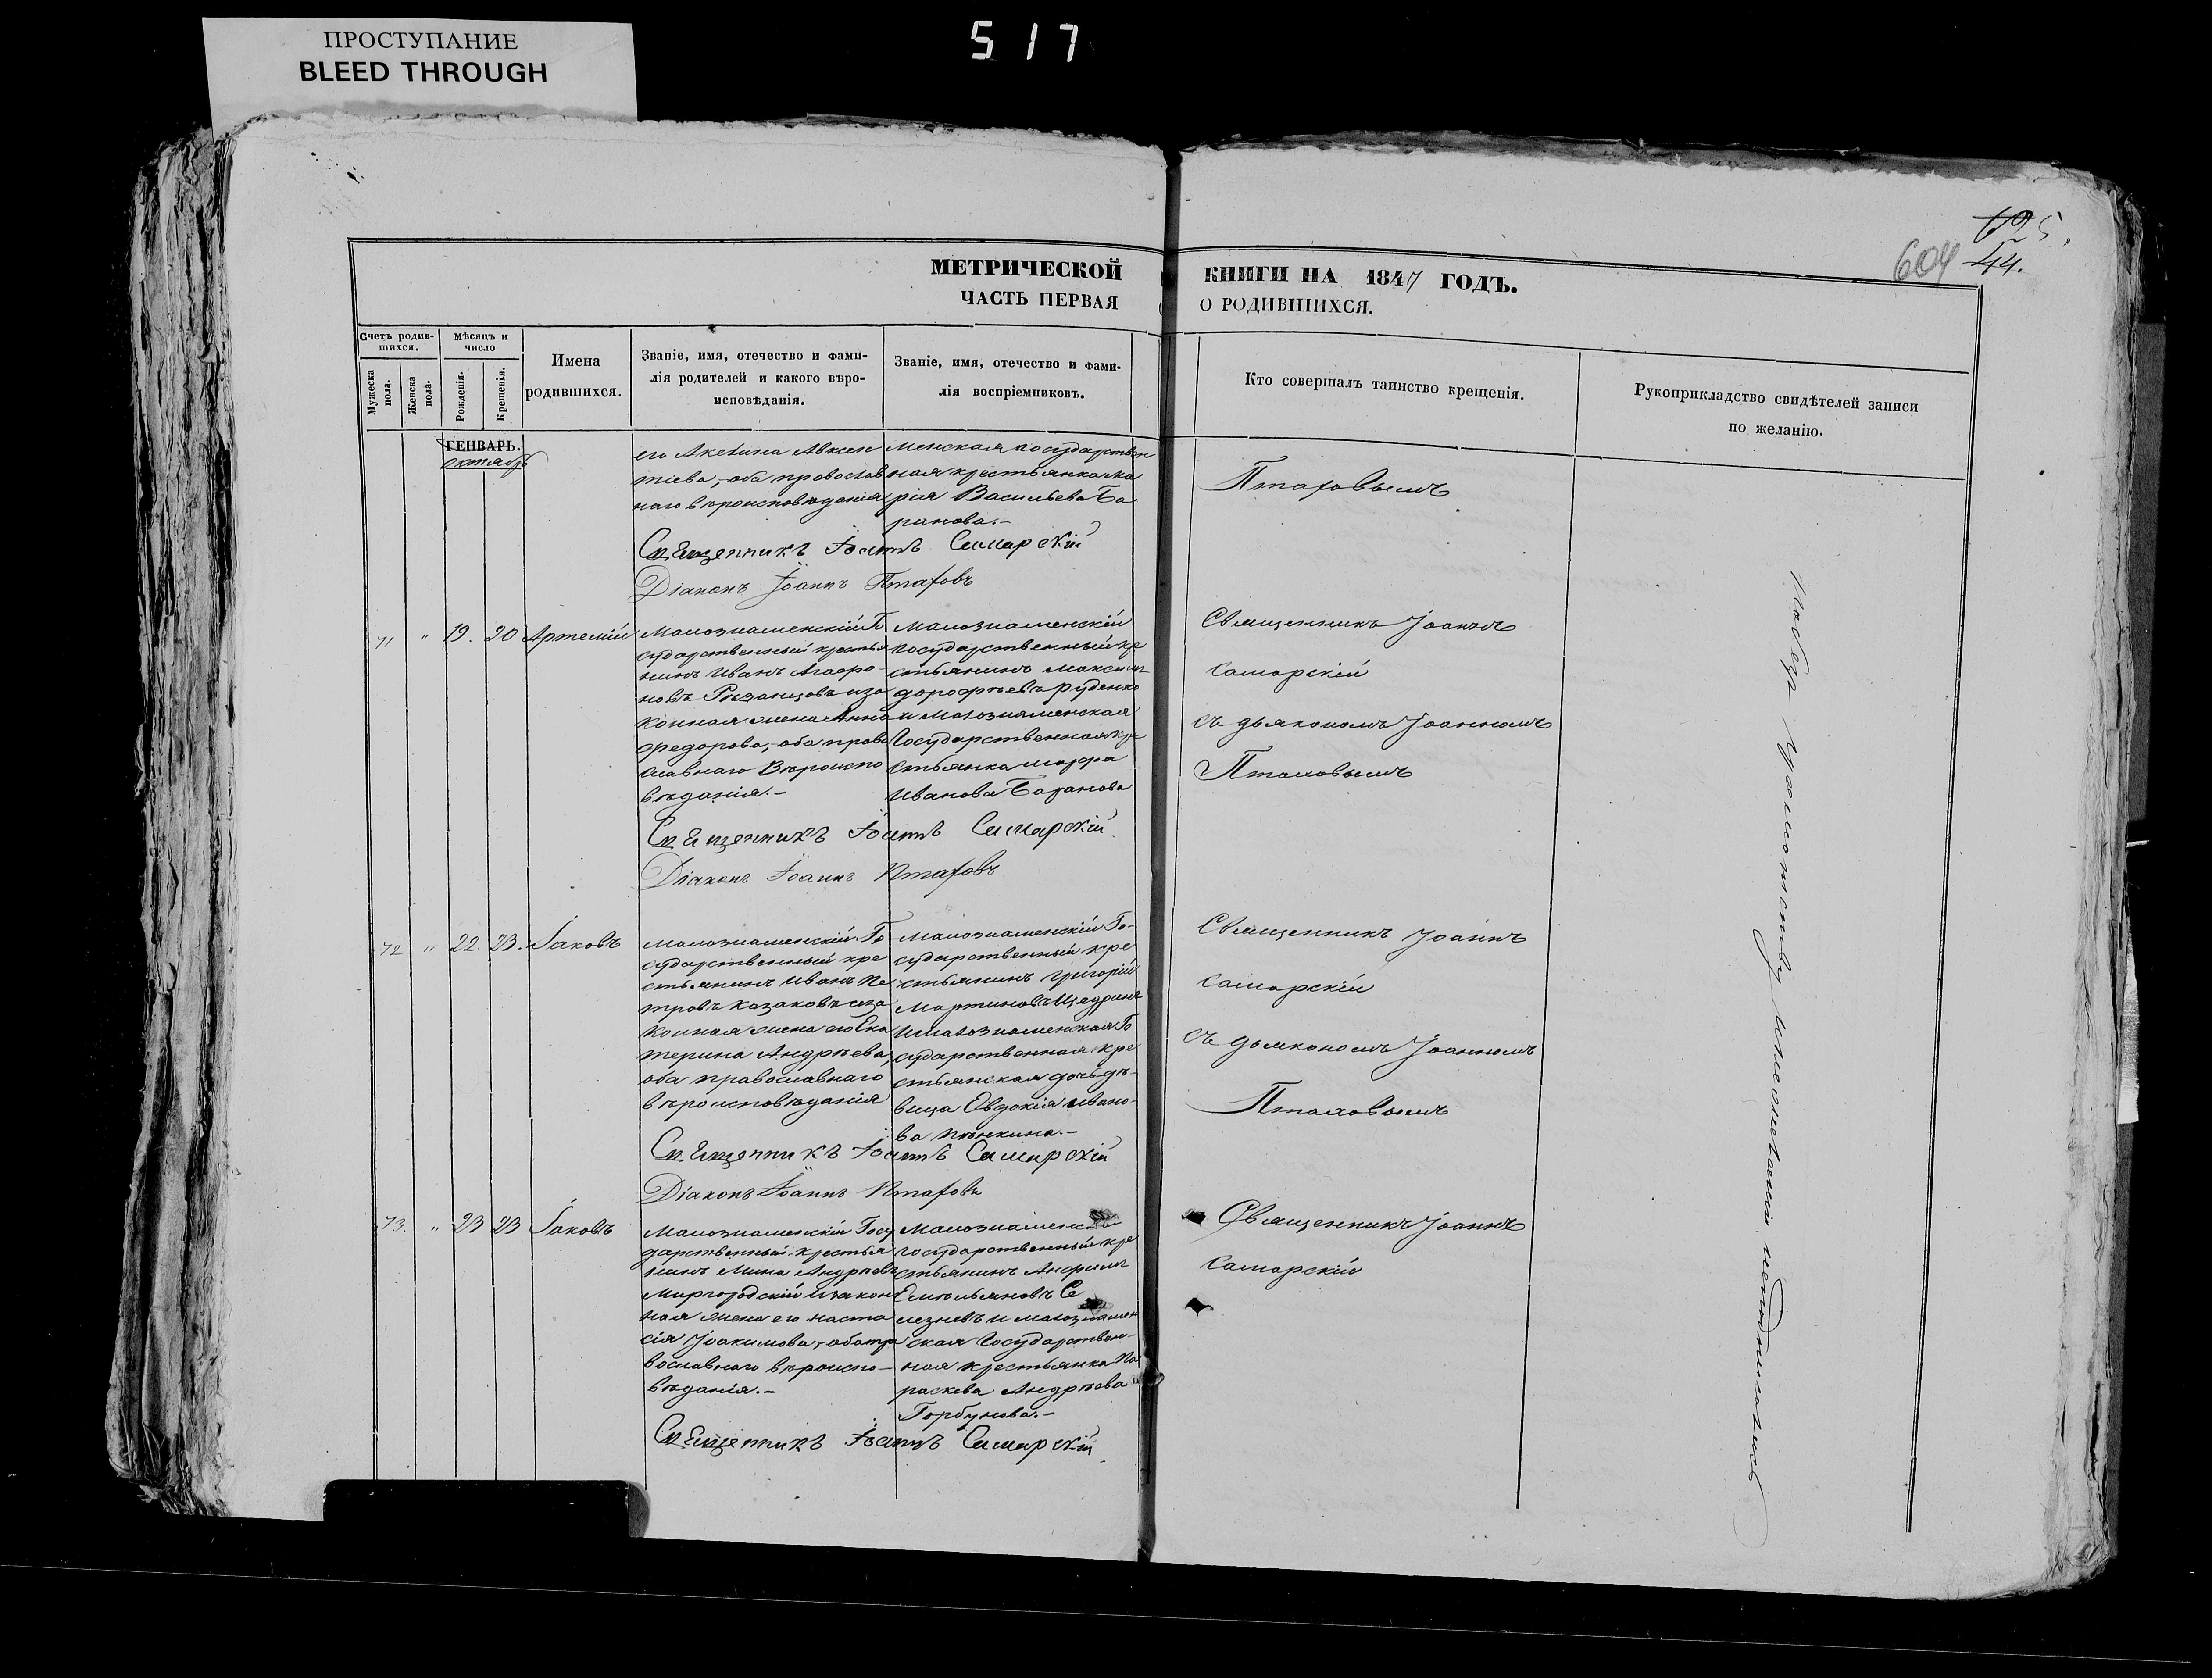 ПРОСТУПАНИЕ
BLEED THROUGH
517
625.
604 44.
МЕТРИЧЕСКОЙ КНИГИ НА 1847 ГОДЪ.
ЧАСТЬ ПЕРВАЯ О РОДИВШИХСЯ.
Счетъ родив-
шихся.
Мужеска
пола.
Женска
пола.
Мѣсяцъ и
число
Рожденія.
Крещенія.
Имена
родившихся.
Званіе, имя, отечество и фами-
лія родителей и какого вѣро-
исповѣданія.
Званіе, имя, отечество и фами-
лія воспріемниковъ.
Кто совершалъ таинство крещенія.
Рукоприкладство свидѣтелей записи
по желанію.
ГЕНВАРЬ.
октябрь
его Акелина Авксен
тіева, оба православ
наго вѣроисповѣданія
менская государствен
ная крестьянка Ма
рія Васильева Ба
ранова.-
Птаховымъ
Священникъ Іоаннъ Самарскій
Діаконъ Іоаннъ Птаховъ
71 " 19. 20 Артемій
Малознаменскій Го
сударственный крестья
нинъ Иванъ Агафо-
новъ Рязанцовъ иза
конная жена Анна
Федорова, оба право
славнаго Вѣроиспо
вѣданія.-
Малознаменскій
государственный кре
стьянинъ Максимъ
дорофѣевъ Руденко
и Малознаменская
Государственная кре
стьянка марфа
Иванова Баранова
Священникъ Іоаннъ
Самарскій
съ дьякономъ Іоанномъ
Птаховымъ
Священникъ Іоаннъ Самарскій
Діаконъ Іоаннъ Птаховъ
72 " 22. 23. Іаковъ
Малознаменскій Го
сударственный кре
стьянинъ Иванъ Пе
тровъ Казаковъ иза
конная жена его Ека
терина Андрѣева,
оба православнаго
вѣроисповѣданія
Малознаменскій Го-
сударственный кре
стьянинъ Григорій
Мартиновъ Щедринъ
Ималознаменская Го
сударственная кре
стьянская дочь дѣ-
вица Евдокія Ивано-
ва Пѣнкина.-
Священникъ Іоаннъ
Самарскій
съ дьякономъ Іоанномъ
Птаховымъ
Священникъ Іоаннъ Самарскій
Діаконъ Іоаннъ Птаховъ
73. " 23 23 Іаковъ
Малознаменскій Госу
дарственный крестья
нинъ Мина Андрѣевъ
Миргородскій изакон
ная жена его Наста
сія Іоакимова, оба пра
вославнаго вѣроиспо-
вѣданія.-
Малознаменскій
государственный кре
стьянинъ Анфимъ
Емельяновъ Се
лезневъ и малознамен
ская Государствен-
ная крестьянка Па
раскева Андрѣева
Горбунова.-
Священникъ Іоаннъ
Самарскій
Священникъ Іоаннъ Самарскій
грамотству неподписались